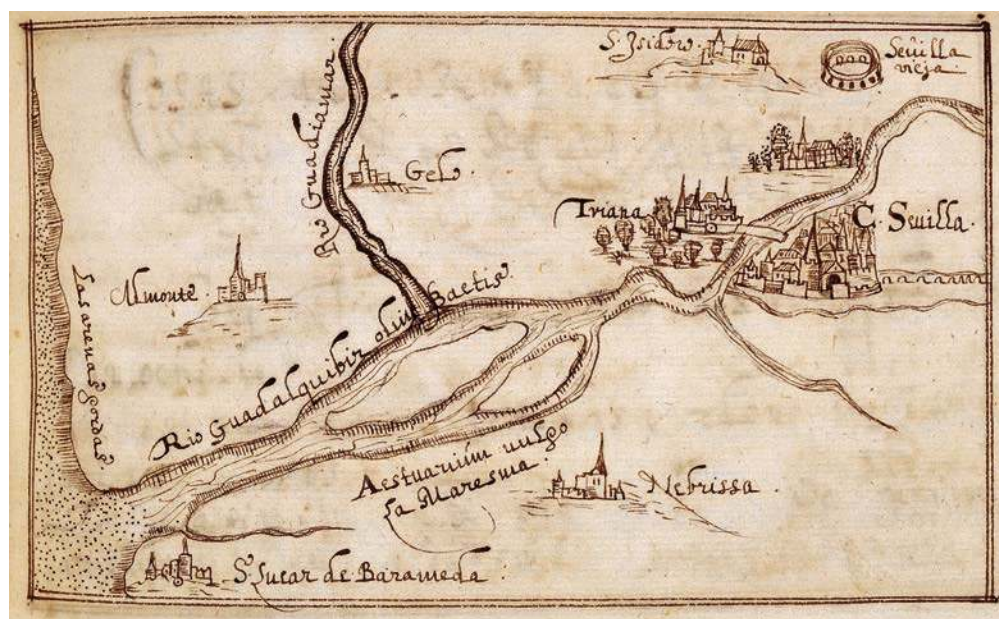 S. Isidro.
Sevilla
vieja.
Rio Guadiamar.
Gel
Triana
C. Sevilla.
Almonte.
Las arenas gordas
Rio Guadalquibir olim Baetis.
Aestuarium vulgo
la Maresma.
Nebrissa.
S. Lucar de Barameda